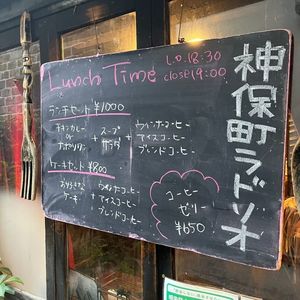 Lunch Time
L.O. 18:30
close 19:00
神保町ラドリオ
ランチセット ¥1000
チキンカレー
or
ナポリタン
+
スープ
サラダ
+
ウィンナーコーヒー
アイスコーヒー
ブレンドコーヒー
ケーキセット ¥800
お好きな
ケーキ
+
ウィンナーコーヒー
アイスコーヒー
ブレンドコーヒー
コーヒー
ゼリー
¥650